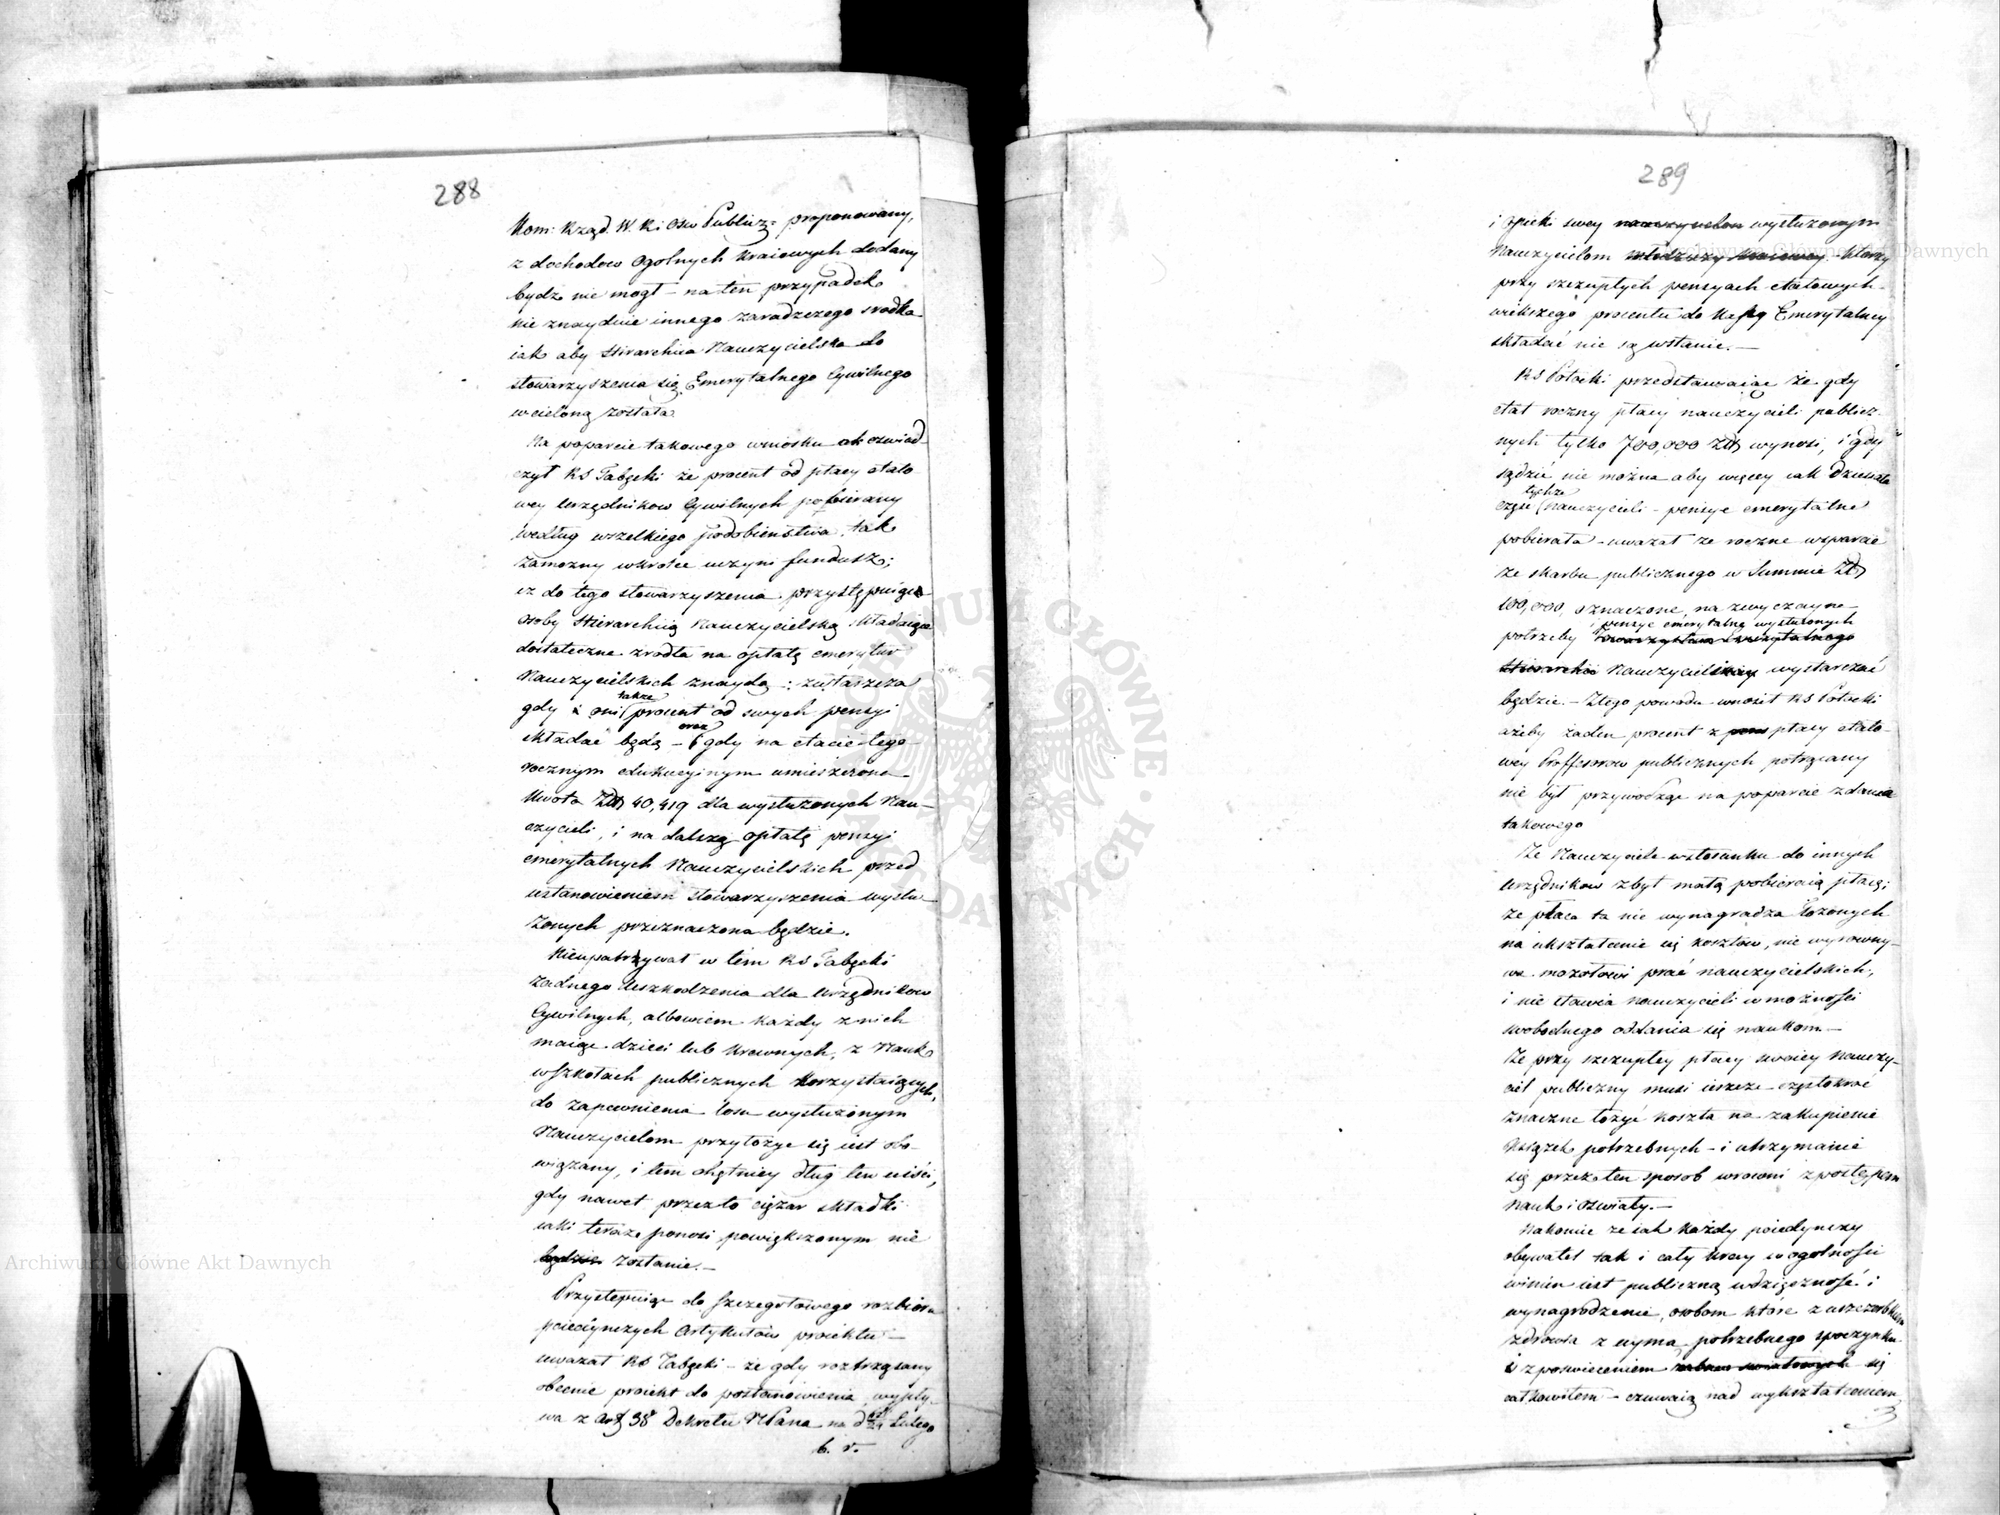 288
Kom: Rząd. W. R. i Osw Publicz: proponowany,
z dochodow Ogolnych Kraiowych dodany
bydz nie mogł – na ten przypadek
nie znayduie innego zaradzczego srodka
iak aby Hierarchia Nauczycielska do
stowarzyszenia się Emerytalnego Cywilnego
wcieloną została
Na poparcie takowego wniosku oświad
czył RS Tabęcki że procent od płacy etato
wey Urzędnikow Cywilnych pobierany
według wszelkiego podobieństwa, tak
zamozny wkrotce uczyni fundusz;
iz do tego stowarzyszenia przystępuiące
osoby Hierarchią Nauczycielską składaiące
dostateczne zrodła na opłatę emerytur
Nauczycielskich znaydą; zwłaszcza
także
gdy i oni procent od swych pensyi
oraz
składać będą – gdy na etacie tego
rocznym edukacyinym umieszczona
kwota Złł 40,419 dla wysłużonych Nau–
czycieli, i na dalszą opłatę pensyi
emerytalnych Nauczycielskich przed
ustanowieniem Stowarzyszenia wysłu
żonych przeznaczona będzie.
Nieupatrzywał w tem RS Tabęcki
żadnego uszkodzenia dla Urzędnikow
Cywilnych, albowiem każdy z nich
maiąc dzieci lub krewnych, z Nauk
w szkołach publicznych korzystaiących,
do zapewnienia losu wysłużonym
Nauczycielom przyłożyc się iest obo–
wiązany, i tem chętniey dług ten uiści,
gdy nawet przez to ciężar składki
iaki teraz ponosi powiększonym nie
będzie zostanie. –
Przystępuiąc do szczegołowego rozbioru
poiedynczych Artykułów proiektu –
uważał RS Tabęcki – że gdy roztrząsany
obecnie proiekt do postanowienia wypły–
wa z Art 38 Dekretu NPana na d Lutego
b. r.
289
i opieki swey nauczycielom wysłużonym
Nauczycielom młodzieży kraiowey którzy
przy szczupłych pensyach etatowych
większego procentu do Kassy Emerytalney
składać nie są wstanie. –
RS Potocki przedstawiaiąc że gdy
etat roczny płacy nauczycieli publicz
nych tylko 700,000 Złł wynosi, i gdy
sądzić nie można aby więcey iak dziesiąta
tychże
częsc nauczycieli – pensye emerytalne
pobierała – uważał że roczne wsparcie
ze skarbu publicznego w Summie Złł
100,000, oznaczone, na zwyczayne
i pensye emerytalną wysłużonych
potrzeby Towarzystwa Emerytalnego
Hierarchii Nauczycielskiey wystarczać
będzie. – Z tego powodu wnosił RS Potocki
ażeby żaden procent z pens płacy etato–
wey Proffesorow publicznych potrącany
nie był przywodząc na poparcie zdania
takowego
Że Nauczyciele wstosunku do innych
urzędnikow zbyt małą pobieraią płacę;
że płaca ta nie wynagradza łożonych
na ukształcenie się kosztów, nie wyrowny–
wa mozołowi prac nauczycielskich,
i nie stawia nauczycieli w możności
swobodnego oddania się naukom –
Że przy szczupłey płacy swoiey Nauczy–
ciel publiczny musi ieszcze częstokroć
znaczne łożyć koszta na zakupienie
Książek potrzebnych – i utrzymanie
się przez ten sposob w rowni z postępem
Nauk i oświaty. –
Nakoniec że iak każdy poiedynczy
obywatel tak i cały Kray w ogolności
winien iest publiczną wdzięczność i
wynagrodzenie, osobom ktore z uszczerbkiem
zdrowia z uymą potrzebnego spoczynku
i z poswieceniem zabaw swiatowych się
całkowitem – czuwaią nad wykształceniem